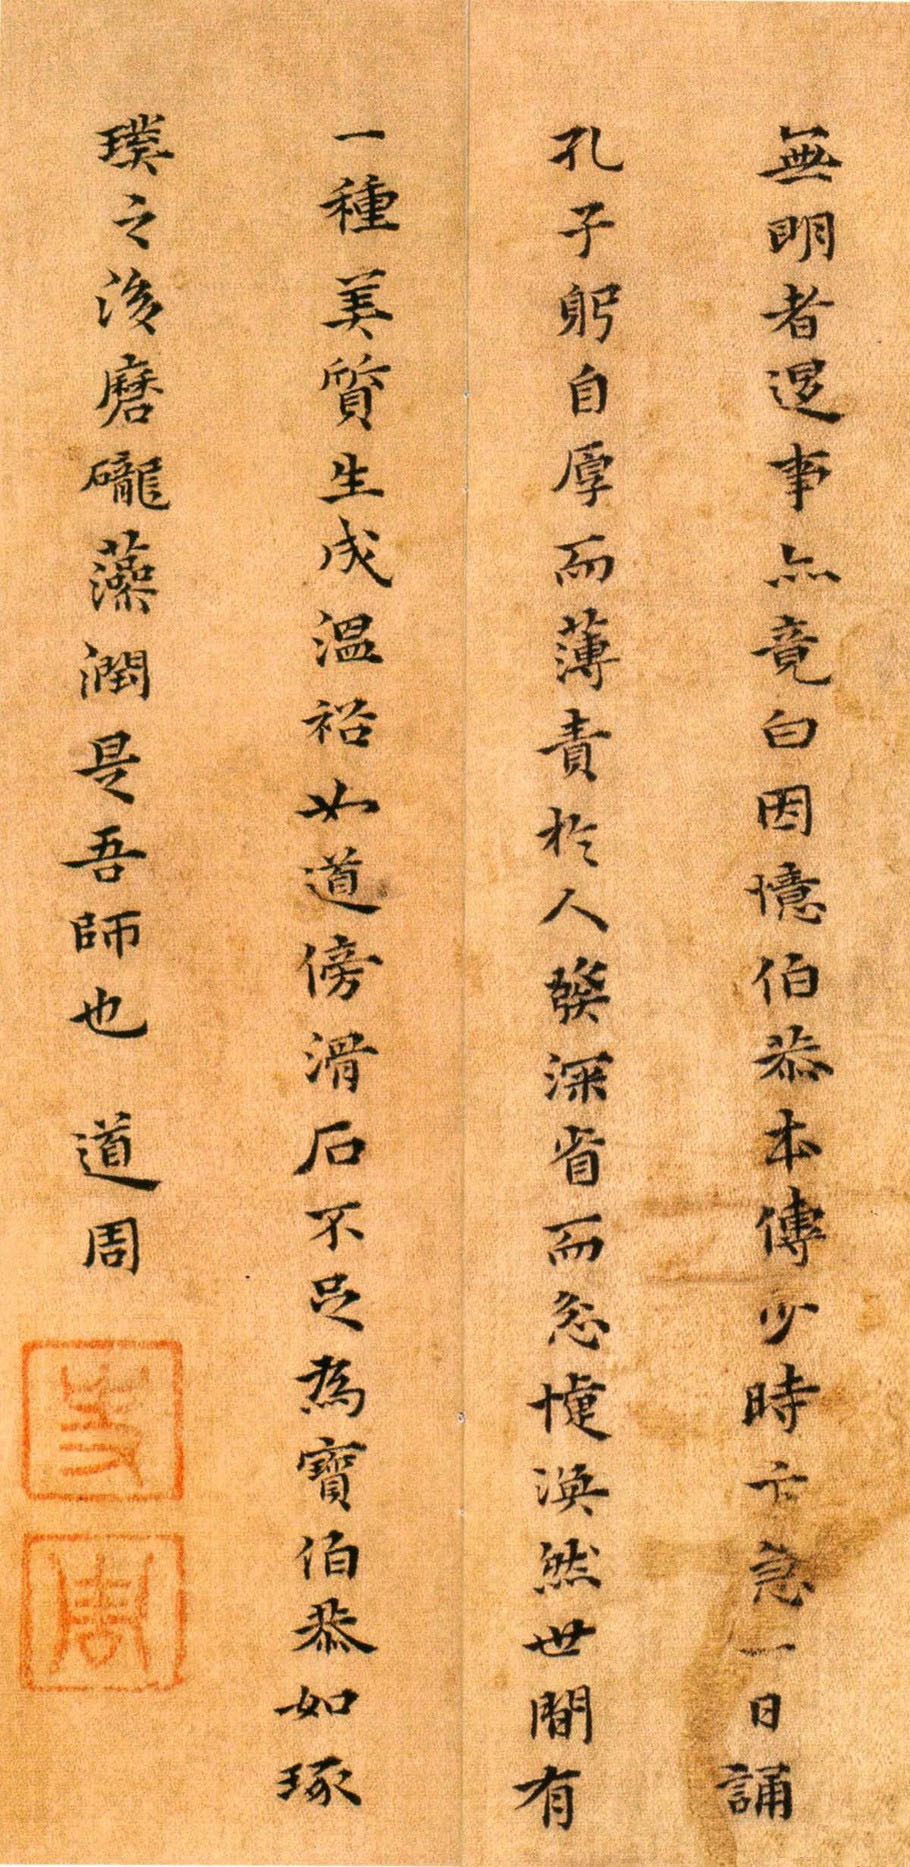 無明者退事亦竟白因憶伯恭本傳少時卞急一日誦
孔子躬自厚而薄責於人發深省而忿懥渙然世間有
一種美質生成溫裕如道傍滑石不足為寶伯恭如琢
璞之後磨礲藻潤是吾師也 道周